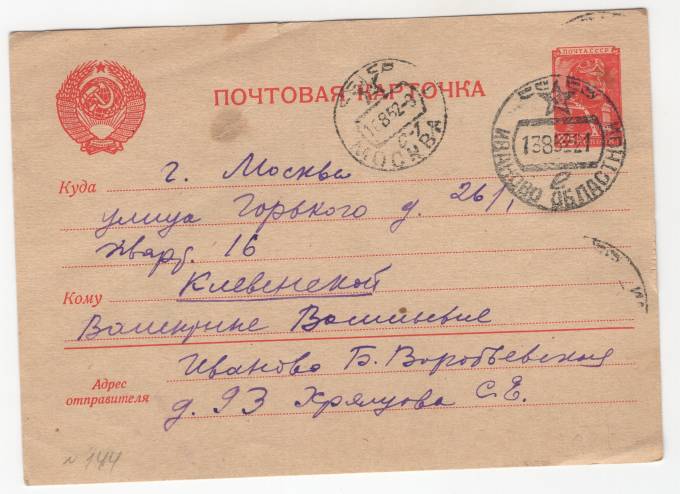 ПОЧТА СССР
ПОЧТОВАЯ КАРТОЧКА
СССР
МОСКВА
СССР
13852-21
ИВАНОВО ОБЛАСТН
Куда г. Москва
улица Горького д. 26/1,
Кварт. 16
Кому Клевенской
Валентине Васильевне
Адрес отправителя
Иваново Б. Воробьевская
д. 93 Хряпцова С.Е.
N 144